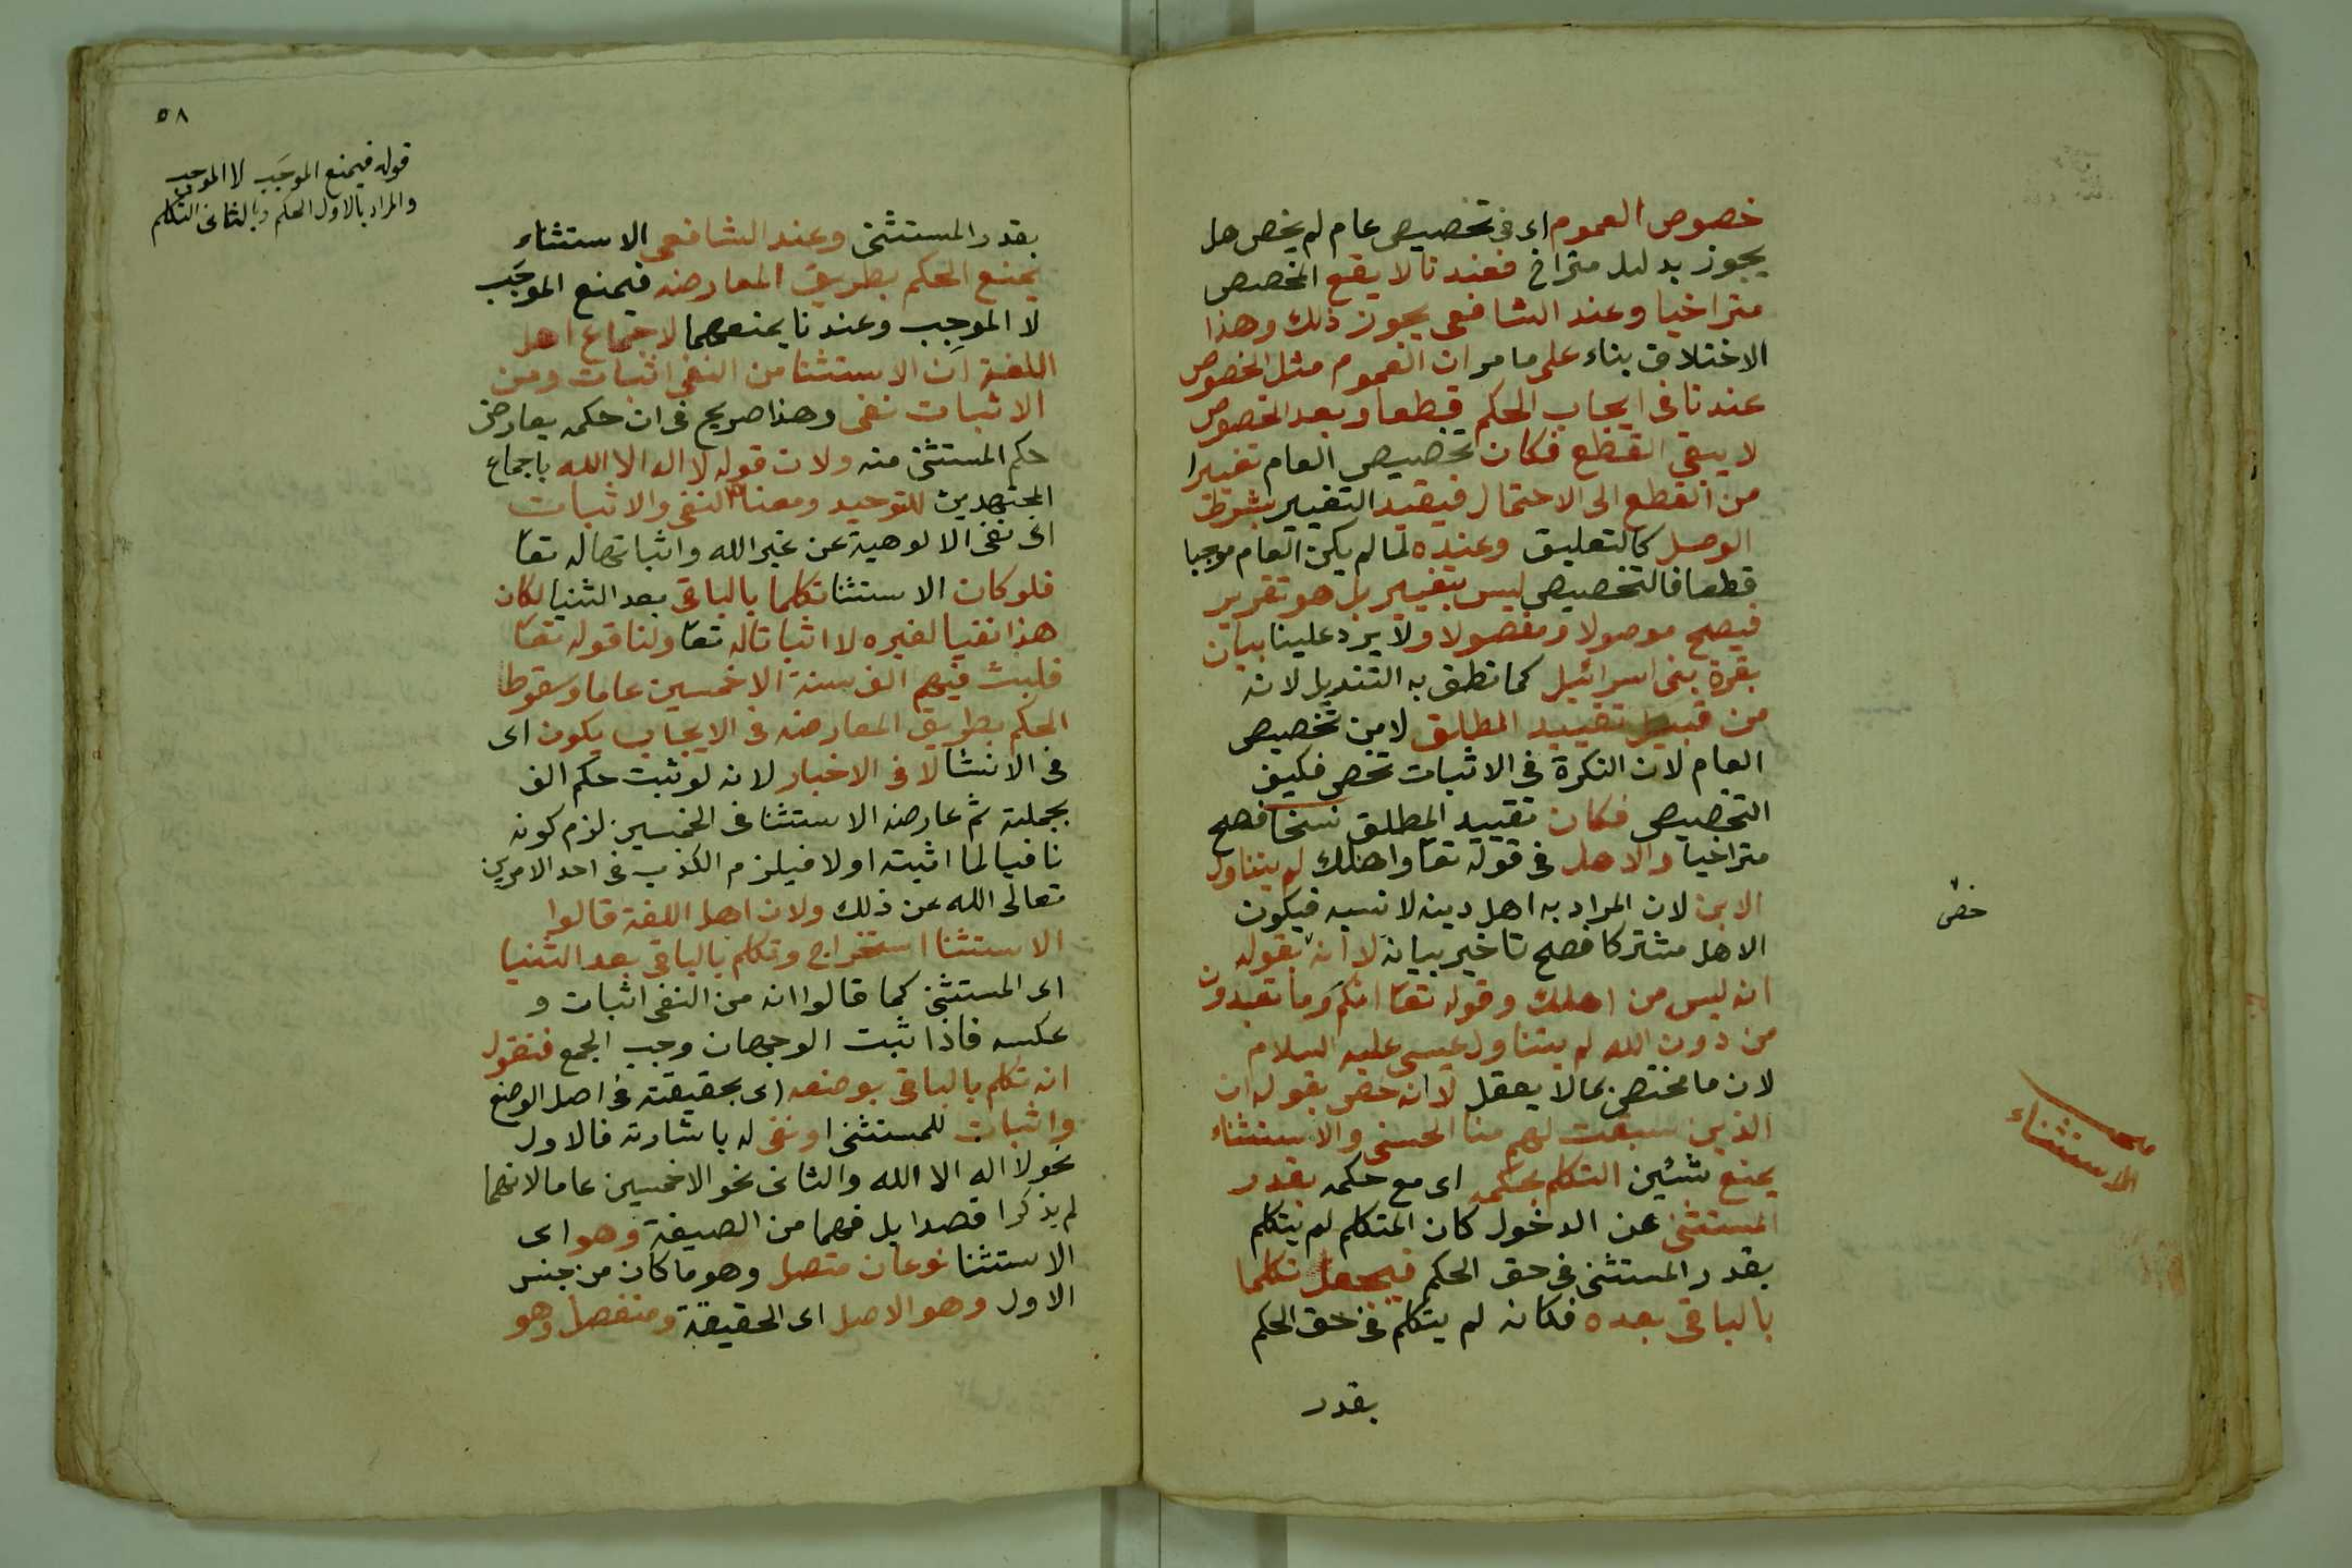 خصوص العموم اى فى تخصيص عام لم يخص هل
يجوز بدليل متراخ فعندنا لا يقع التخصيص
متراخيا وعند الشافعى يجوز ذلك وهذا
الاختلاف بناء على ما مر ان العموم مثل الخصوص
عندنا فى ايجاب الحكم قطعا وبعد الخصوص
لا يبقى القطع فكان تخصيص العام تغييرا
من القطع الى الاحتمال فيقيد التغيير بشرط
الوصل كالتعليق وعنده لما لم يكن العام موجبا
قطعا فالتخصيص ليس بتغيير بل هو تقرير
فيصح موصولا ومفصولا ولا يرد علينا بيان
بقرة بنى اسرائيل كما نطق به التنزيل لانه
من قبيل تقييد المطلق لا من تخصيص
العام لان النكرة فى الاثبات تخص فكيف
التخصيص فكان تقييد المطلق نسخا فصح
متراخيا والاهل فى قوله تعا واهلك لم يتناول
الابن لان المراد به اهل دينه لا نسبه فيكون
الاهل مشتركا فصح تاخير بيانه لا انه بقوله
خص
انه ليس من اهلك وقوله تعا انكم وما تعبدون
من دون الله لم يتناول عيسى عليه السلام
لان ما مختص بما لا يعقل لا انه خص بقوله ان
الذين سبقت لهم منا الحسنى والاستثناء
مبحث الاستثناء
يمنع شئين التكلم بحكمه اى مع حكمه بقدر
المستثنى عن الدخول كان المتكلم لم يتكلم
بقدر المستثنى فى حق الحكم فيجعل تكلما
بالباقى بعده فكانه لم يتكلم فى حق الحكم
بقدر
٥٨
قوله فيمنع الموجَب لا الموجِب
والمراد بالاول الحكم وبالثانى التكلم
بقدر المستثنى وعند الشافعى الاستثناء
يمنع الحكم بطريق المعارضه فيمنع الموجَب
لا الموجِب وعندنا يمنعهما لاجماع اهل
اللغة ان الاستثنا من النفى اثبات ومن
الاثبات نفى وهذا صريح فى ان حكمه يعارض
حكم المستثنى منه ولان قوله لا اله الا الله باجماع
المجتهدين للتوحيد ومعناه النفى والاثبات
اى نفى الالوهية عن غير الله واثباتها له تعا
فلو كان الاستثنا تكلما بالباقى بعد الثنيا لكان
هذا نفيا لغيره لا اثباتا له تعا ولنا قوله تعا
فلبث فيهم الف سنة الا خمسين عاما وسقوط
الحكم بطريق المعارضه فى الايجاب يكون اى
فى الانشا لا فى الاخبار لانه لو ثبت حكم الف
بجملته ثم عارضه الاستثنا فى الخمسين لزم كونه
نافيا لما اثبته اولا فيلزم الكذب فى احد الامرين
تعالى الله عن ذلك ولان اهل اللغة قالوا
الاستثنا استخراج وتكلم بالباقى بعد الثنيا
اى المستثنى كما قالوا انه من النفى اثبات و
عكسه فاذا ثبت الوجهان وجب الجمع فنقول
انه تكلم بالباقى بوضعه اى بحقيقته فى اصل الوضع
واثبات للمستثنى او نفى له باشارته فالاول
نحو لا اله الا الله والثانى نحو الا خمسين عاما لانهما
لم يذكرا قصدا بل فهما من الصيغة وهو اى
الاستثنا نوعان متصل وهو ما كان من جنس
الاول وهو الاصل اى الحقيقة ومنفصل وهو